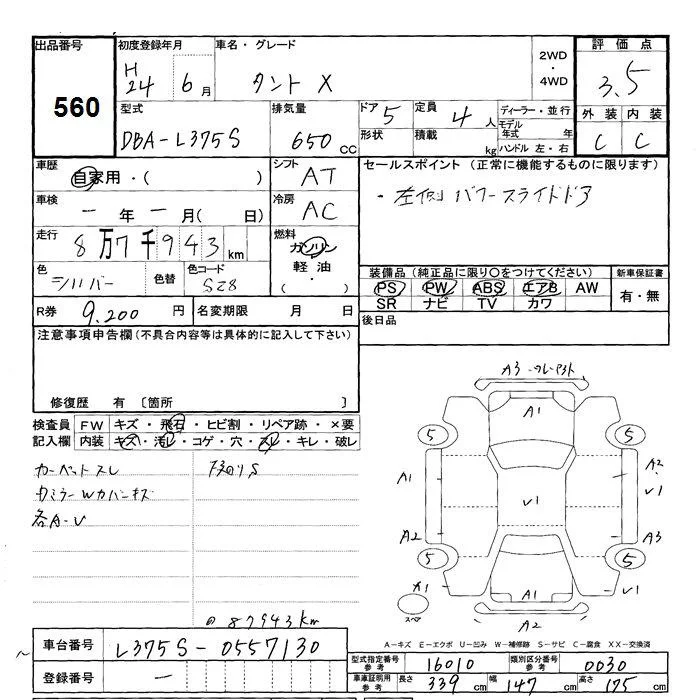 出品番号 初度登録年月 車名・グレード 2WD・4WD 評価点
560 H24 6月 タント X 3.5
型式 排気量 ドア 5 定員 4人 ディーラー・並行 外装 内装
DBA-L375S 650 CC 形状 積載 kg モデル年式 年 C C
ハンドル 左・右
車歴 自家用・( ) シフト AT セールスポイント (正常に機能するものに限ります)
車検 ー年ー月( 日) 冷房 AC ・左側パワースライドドア
走行 8万7千943km 燃料 ガソリン
軽油・( )
色 シルバー 色替 色コード S28 装備品(純正品に限り○をつけてください) 新車保証書
PS PW ABS エアB AW 有・無
SR ナビ TV カワ
R券 9,200円 名変期限 月 日 後日品
注意事項申告欄(不具合内容等は具体的に記入して下さい)
修復歴 有 〔箇所 〕
検査員 FW キズ・飛石・ヒビ割・リペア跡・×要
記入欄 内装 キズ・汚レ・コゲ・穴・スレ・キレ・破レ
カーペットスレ
各A-U
A3
A1
5 5
A1 A2
U1 U1
A2 A3
5 5
U1
スペア A1
A2
@87943km
A-キズ E-エクボ U-凹み W-補修跡 S-サビ C-腐食 XX-交換済
車台番号 L375S-0557130
型式指定番号 参考 16010 類別区分番号 参考 0030
登録番号 ー
車庫証明用 参考 長さ 339 cm 幅 147 cm 高さ 175 cm